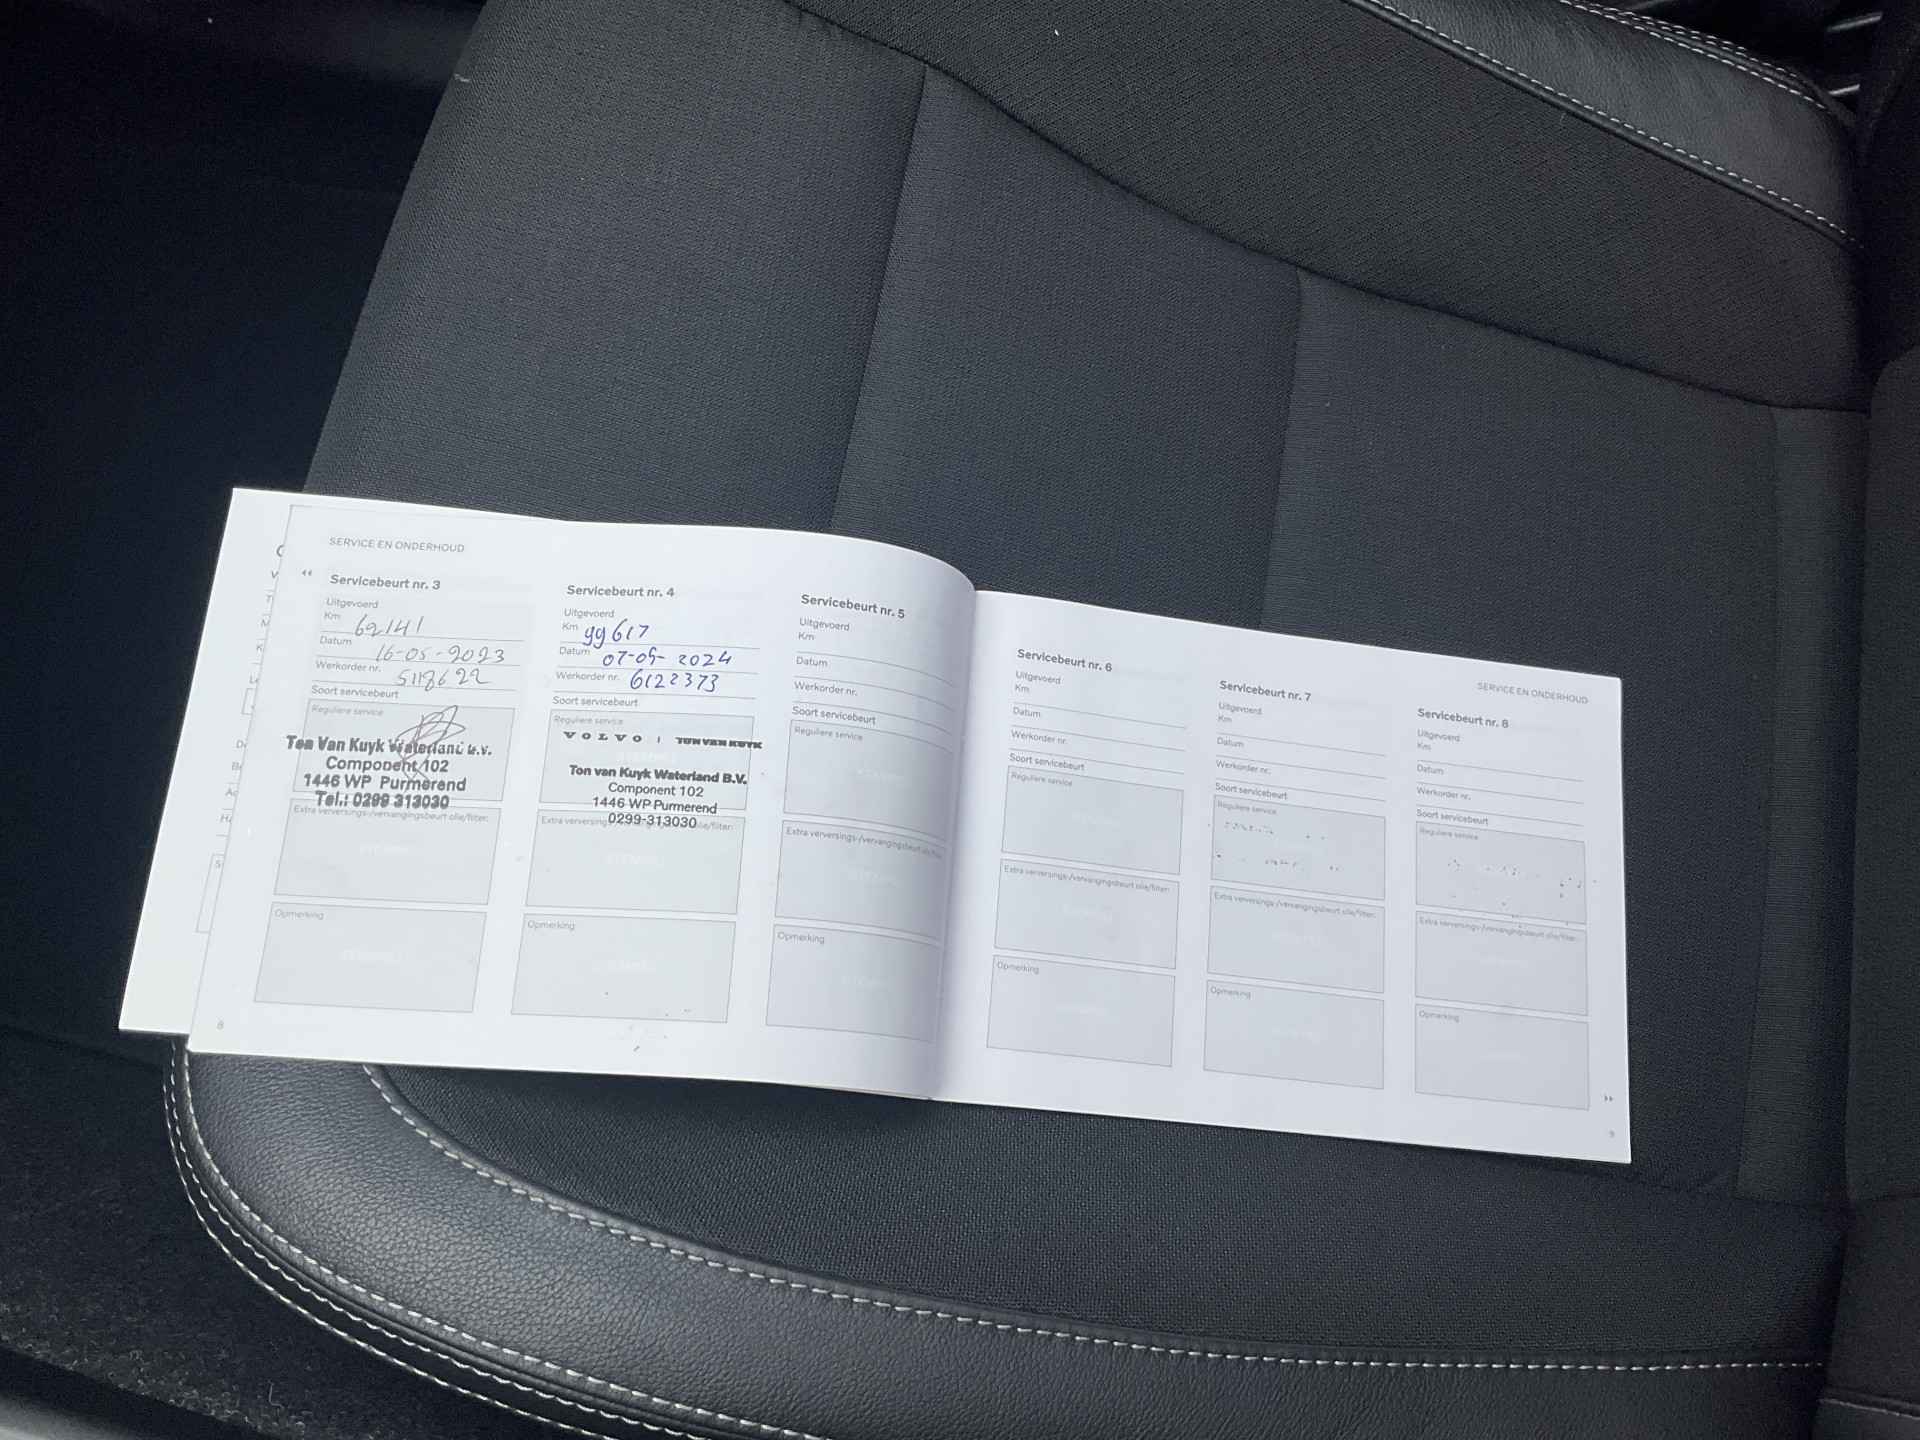 SERVICE EN ONDERHOUD
Servicebeurt nr. 3
Uitgevoerd
Km 62141
Datum 16-05-2023
Werkorder nr. 5118622
Soort servicebeurt
Reguliere service
Ton Van Kuyk Waterland b.v.
Component 102
1446 WP Purmerend
Tel.: 0299 313030
Extra verversings-/vervangingsbeurt olie/filter:
Opmerking
8
Servicebeurt nr. 4
Uitgevoerd
Km 99617
Datum 07-05-2024
Werkorder nr. 6122373
Soort servicebeurt
Reguliere service
VOLVO | TON VAN KUYK
Ton van Kuyk Waterland B.V.
Component 102
1446 WP Purmerend
0299-313030
Extra verversings-/vervangingsbeurt olie/filter:
Opmerking
Servicebeurt nr. 5
Uitgevoerd
Km
Datum
Werkorder nr.
Soort servicebeurt
Reguliere service
Extra verversings-/vervangingsbeurt olie/
Opmerking
SERVICE EN ONDERHOUD
Servicebeurt nr. 6
Uitgevoerd
Km
Datum
Werkorder nr.
Soort servicebeurt
Reguliere service
Extra verversings-/vervangingsbeurt olie/filter:
Opmerking
Servicebeurt nr. 7
Uitgevoerd
Km
Datum
Werkorder nr.
Soort servicebeurt
Reguliere service
Extra verversings-/vervangingsbeurt olie/filter:
Opmerking
Servicebeurt nr. 8
Uitgevoerd
Km
Datum
Werkorder nr.
Soort servicebeurt
Reguliere service
Extra verversings-/vervangingsbeurt olie/filter:
Opmerking
9